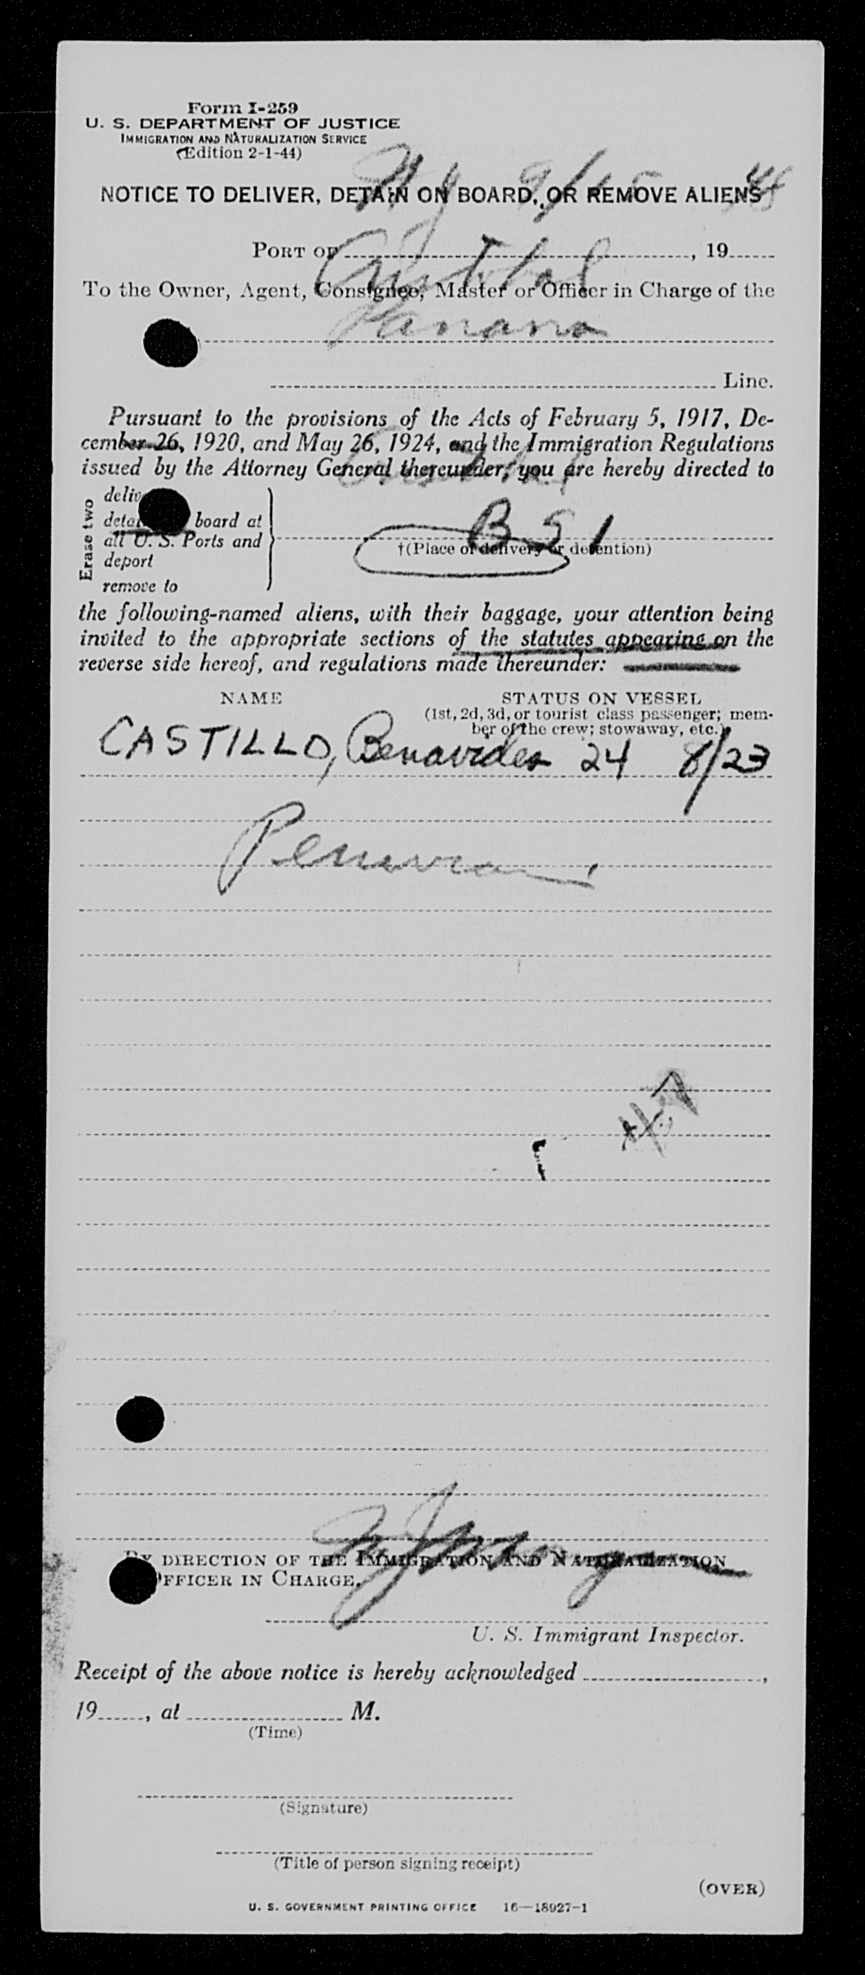 Form I-259
U. S. DEPARTMENT OF JUSTICE
IMMIGRATION AND NATURALIZATION SERVICE
(Edition 2-1-44)
NOTICE TO DELIVER, DETAIN ON BOARD, OR REMOVE ALIENS
PORT OF , 19
Cristobal
To the Owner, Agent, Consignee, Master or Officer in Charge of the
Panama
Line.
Pursuant to the provisions of the Acts of February 5, 1917, De-
cember 26, 1920, and May 26, 1924, and the Immigration Regulations
issued by the Attorney General thereunder, you are hereby directed to
Erase two
board at
all U. S. Ports and
deport
remove to
B S I
†(Place of delivery or detention)
the following-named aliens, with their baggage, your attention being
invited to the appropriate sections of the statutes appearing on the
reverse side hereof, and regulations made thereunder:
NAME STATUS ON VESSEL
(1st, 2d, 3d, or tourist class passenger; mem-
ber of the crew; stowaway, etc.)
CASTILLO, Benavides 24 8/23
Peruvian
BY DIRECTION OF THE IMMIGRATION AND NATURALIZATION
OFFICER IN CHARGE.
U. S. Immigrant Inspector.
Receipt of the above notice is hereby acknowledged ,
19 , at M.
(Time)
(Signature)
(Title of person signing receipt)
(OVER)
U. S. GOVERNMENT PRINTING OFFICE 16—18927-1